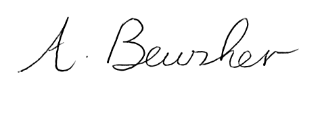 A. Bewsher